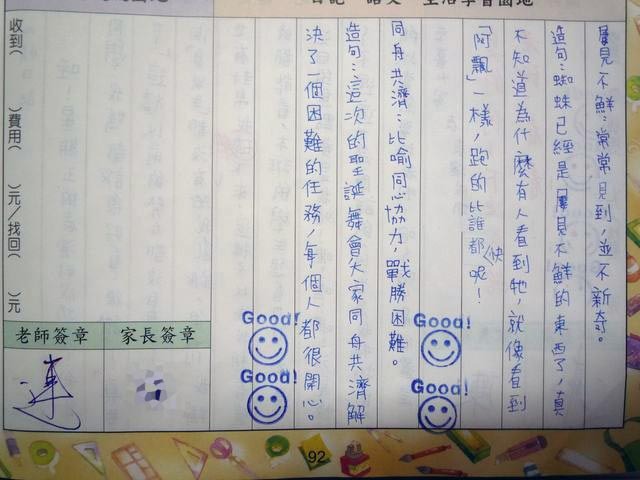 日記、語文、生活學習園地
屢見不鮮：常常見到，並不新奇。
造句：蜘蛛已經是屢見不鮮的東西了，真
不知道為什麼有人看到牠，就像看到
「阿飄」一樣，跑的比誰都快呢！
同舟共濟：比喻同心協力，戰勝困難。
造句：這次的聖誕舞會大家同舟共濟解
決了一個困難的任務，每個人都很開心。
Good!
Good!
Good!
Good!
收到（　）費用（　）元／找回（　）元
家長簽章
老師簽章
92